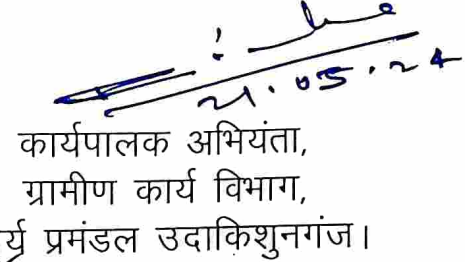 21.05.24
कार्यपालक अभियंता,
ग्रामीण कार्य विभाग,
र्य्र प्रमंडल उदाकिशुनगंज।